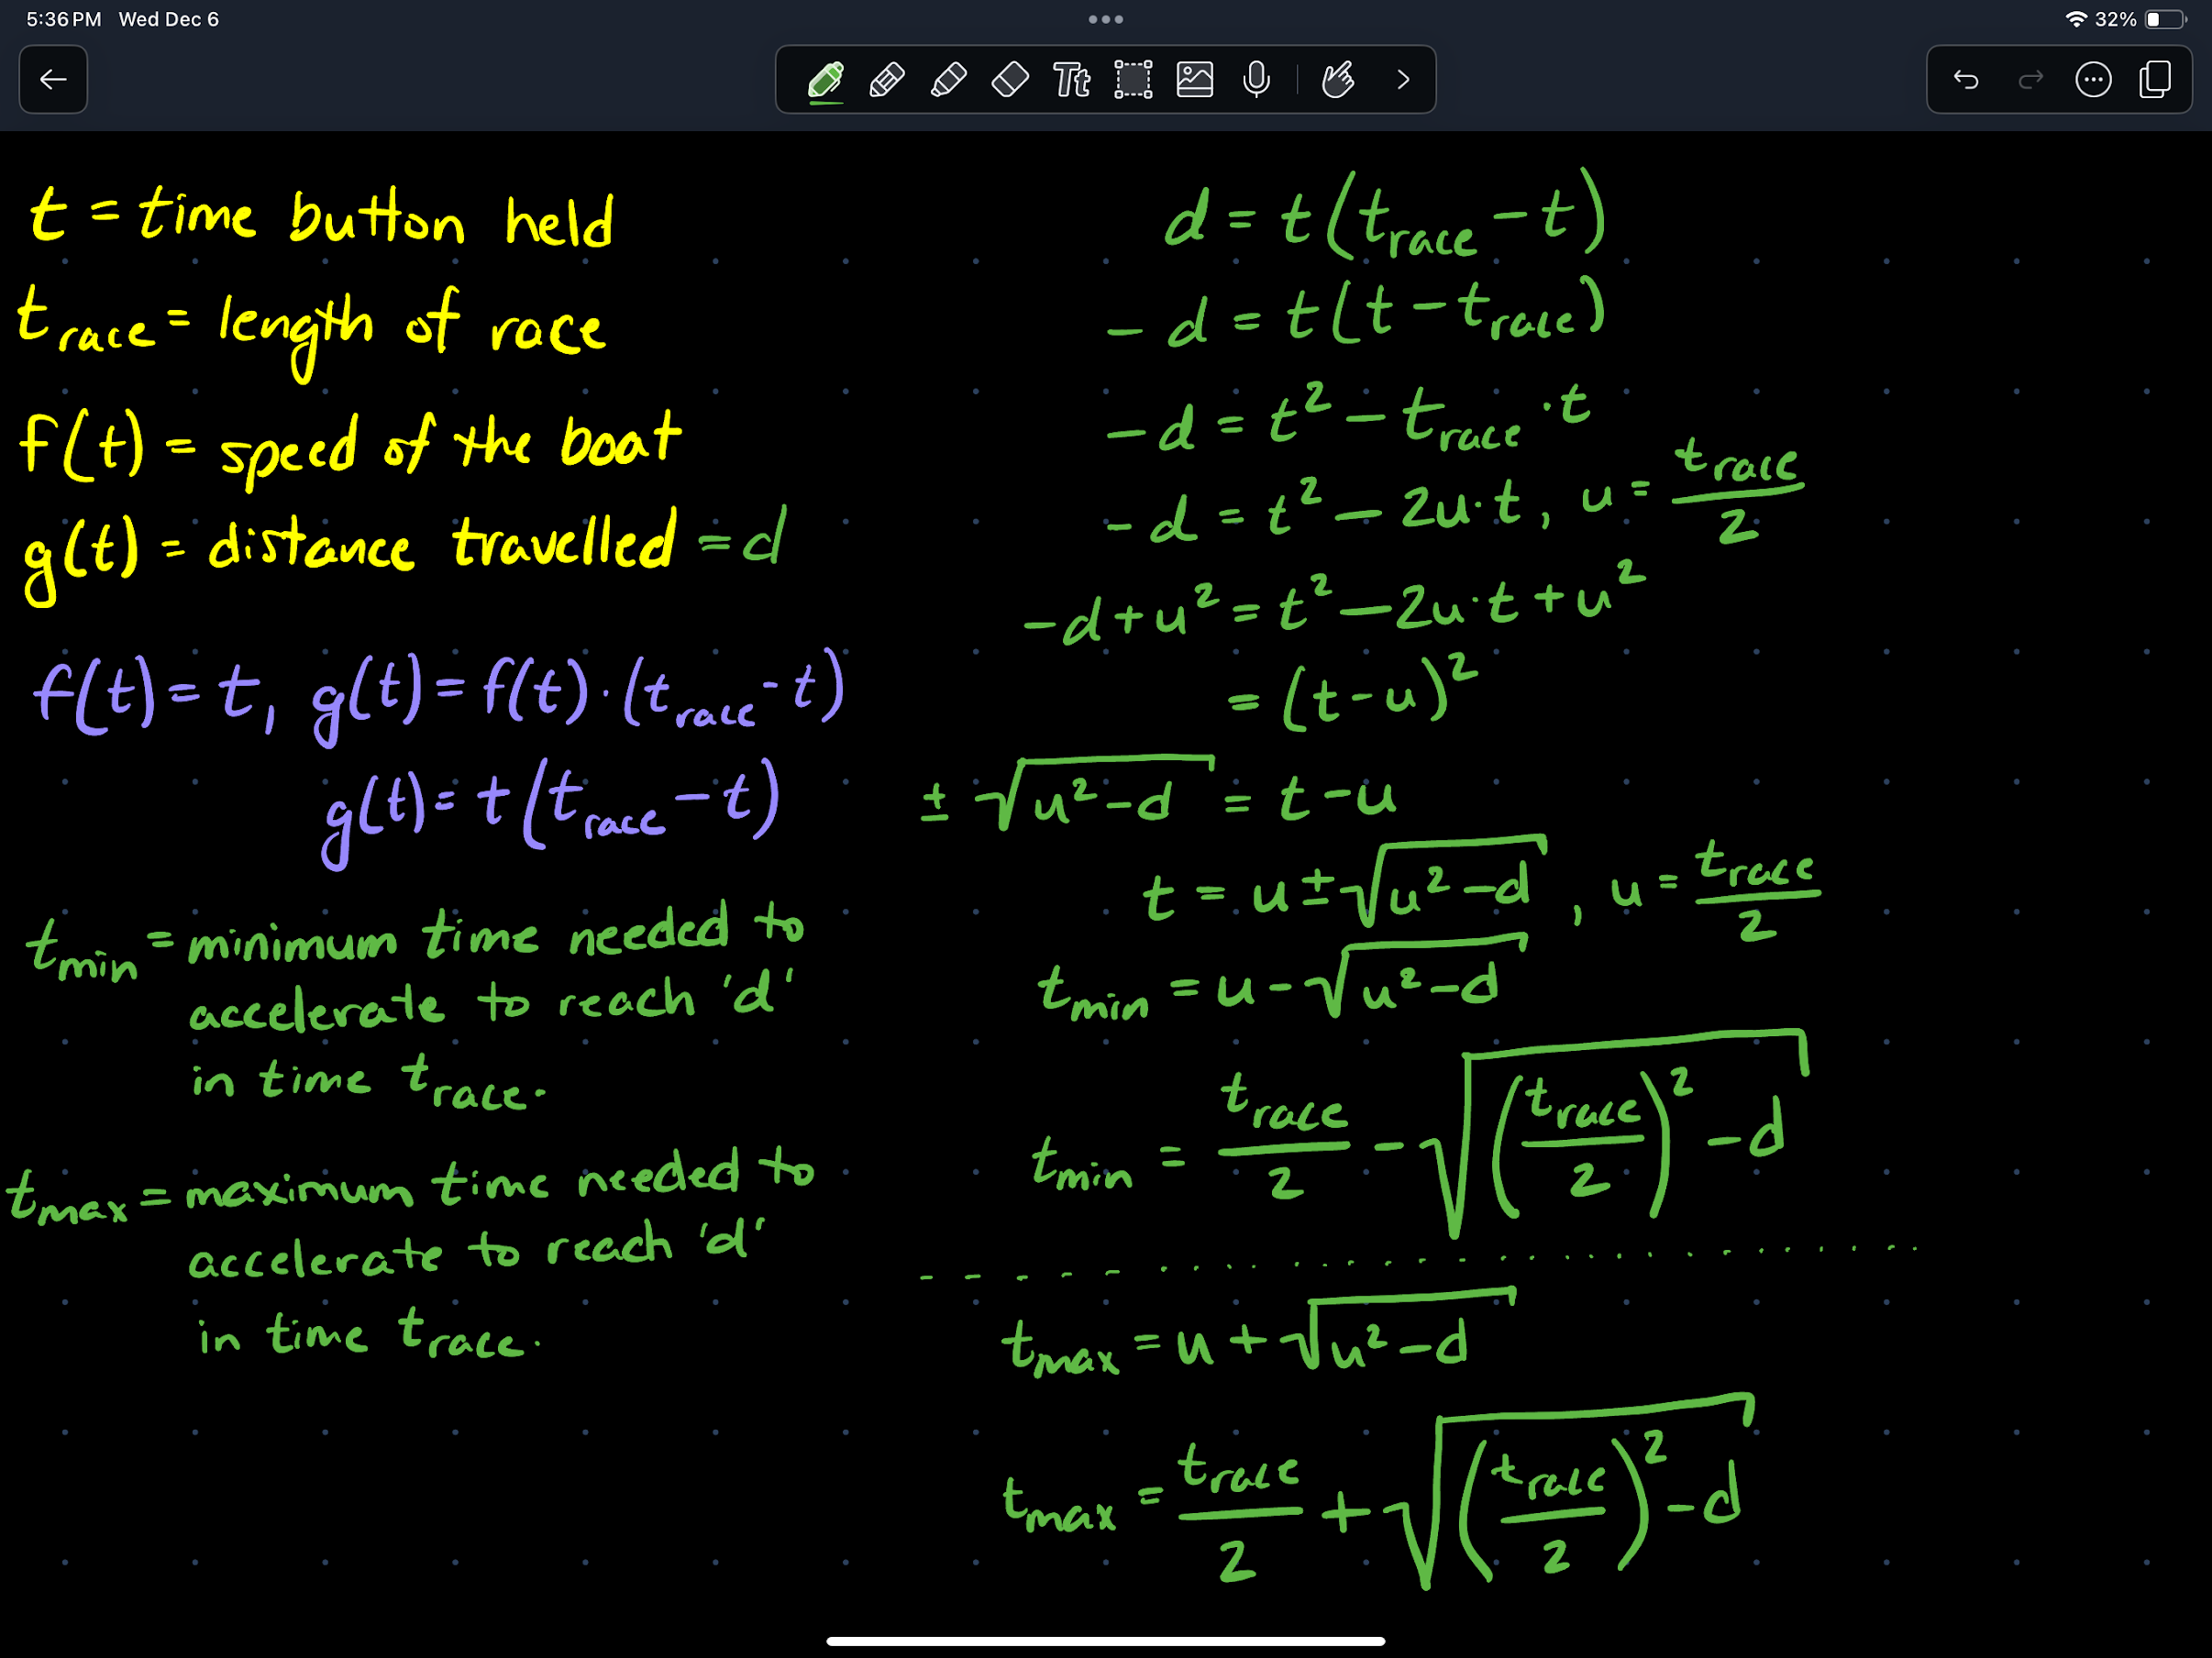 5:36 PM Wed Dec 6
32%
Tt
t = time button held
t_race = length of race
f(t) = speed of the boat
g(t) = distance travelled = d
f(t) = t, g(t) = f(t)·(t_race - t)
g(t) = t(t_race - t)
t_min = minimum time needed to
accelerate to reach 'd'
in time t_race.
t_max = maximum time needed to
accelerate to reach 'd'
in time t_race.
d = t(t_race - t)
-d = t(t - t_race)
-d = t² - t_race · t
-d = t² - 2u·t, u = t_race/2
-d + u² = t² - 2u·t + u²
= (t - u)²
± √(u² - d) = t - u
t = u ± √(u² - d), u = t_race/2
t_min = u - √(u² - d)
t_min = t_race/2 - √((t_race/2)² - d)
t_max = u + √(u² - d)
t_max = t_race/2 + √((t_race/2)² - d)